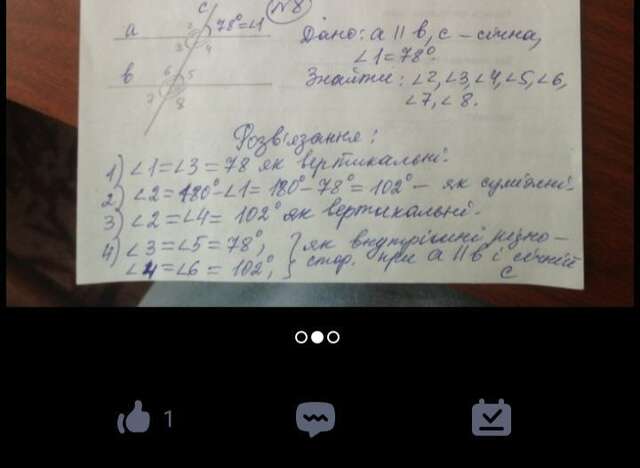 №8
c
a
2
78°=∠1
3 4
b
6 5
7 8
Дано: a || b, c – січна,
∠1=78°.
Знайти: ∠2,∠3,∠4,∠5,∠6,
∠7,∠8.
Розв'язання:
1) ∠1=∠3=78 як вертикальні.
2) ∠2=180°-∠1=180°-78°=102° – як суміжні.
3) ∠2=∠4= 102° як вертикальні.
4) ∠3=∠5=78°; } як внутрішні різно-
∠4=∠6=102°; стор. при a || b і січній
c
1